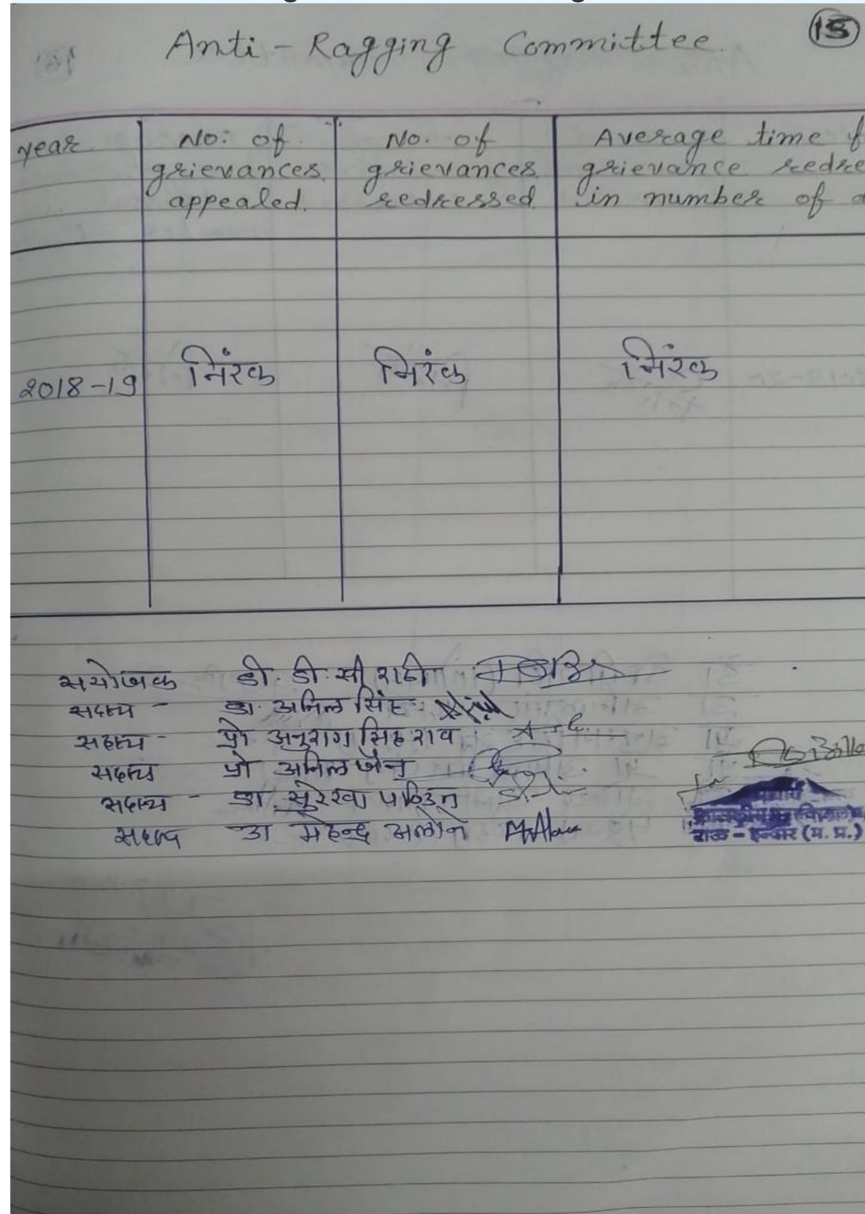 15
Anti - Ragging Committee.
year
No: of grievances appealed.
No. of grievances redressed.
Average time f
grievance redre
in number of d
2018-19 निरंक निरंक निरंक
सयोजक डॉ. डी. सी राठी
सदस्य - डा. अनिल सिंह
सदस्य - प्रो अनुराग सिंह राव
सदस्य प्रो अनिल जैन
सदस्य - डा. सुरेखा
सदस्य डा महेन्द्र अलोने
प्राचार्य
राऊ - इन्दौर (म. प्र.)